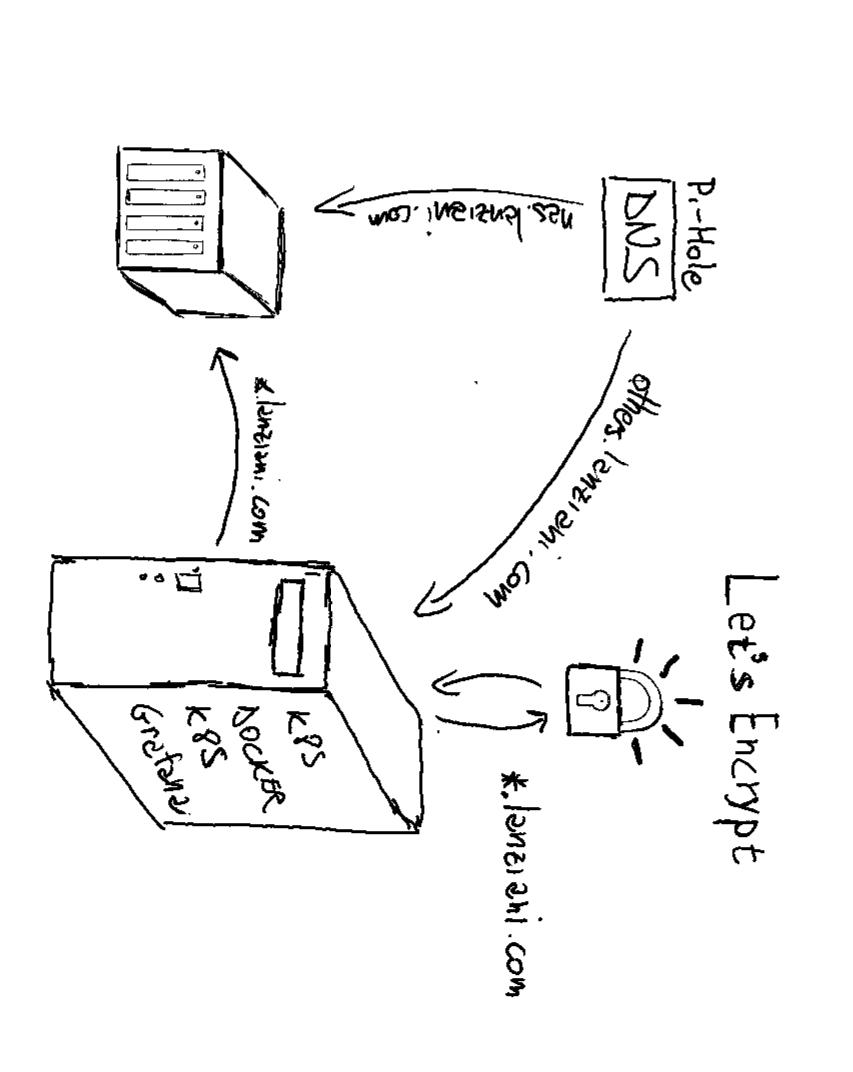 Let's Encrypt
Pi-Hole
DNS
others.lanziani.com
nas.lanziani.com
*.lanziani.com
*.lanziani.com
K8S
DOCKER
K8S
Grafana